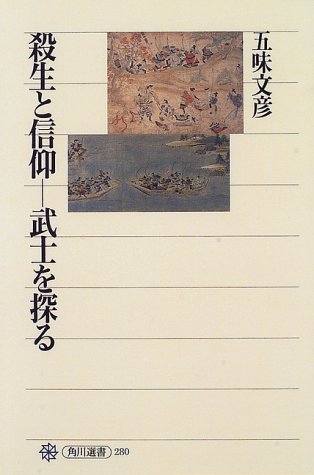 殺生と信仰―武士を探る
五味文彦
角川選書 280